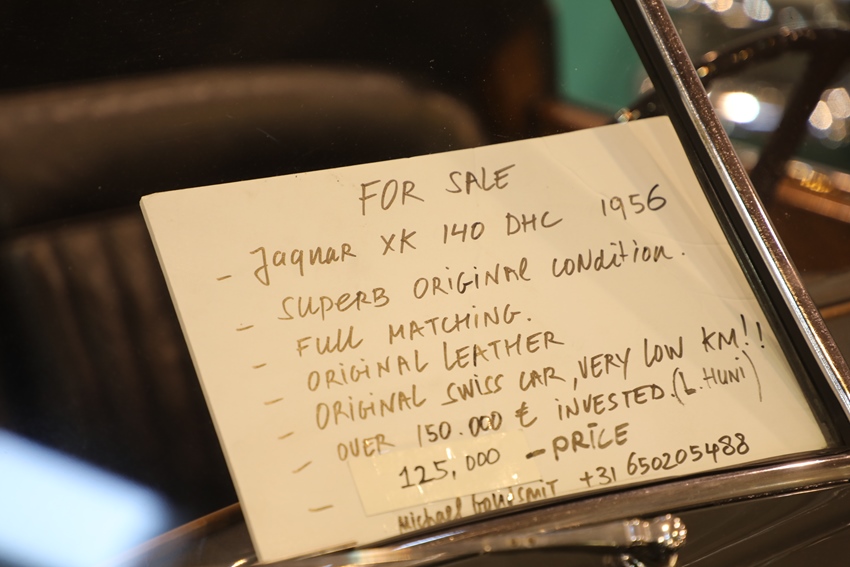 FOR SALE
- Jaguar XK 140 DHC 1956
- SUPERB ORIGINAL CONDITION.
- FULL MATCHING.
- ORIGINAL LEATHER
- ORIGINAL SWISS CAR, VERY LOW KM!!
- OVER 150.000 € INVESTED.(L.HUNI)
- 125,000 - PRICE
- Michael +31 650205488